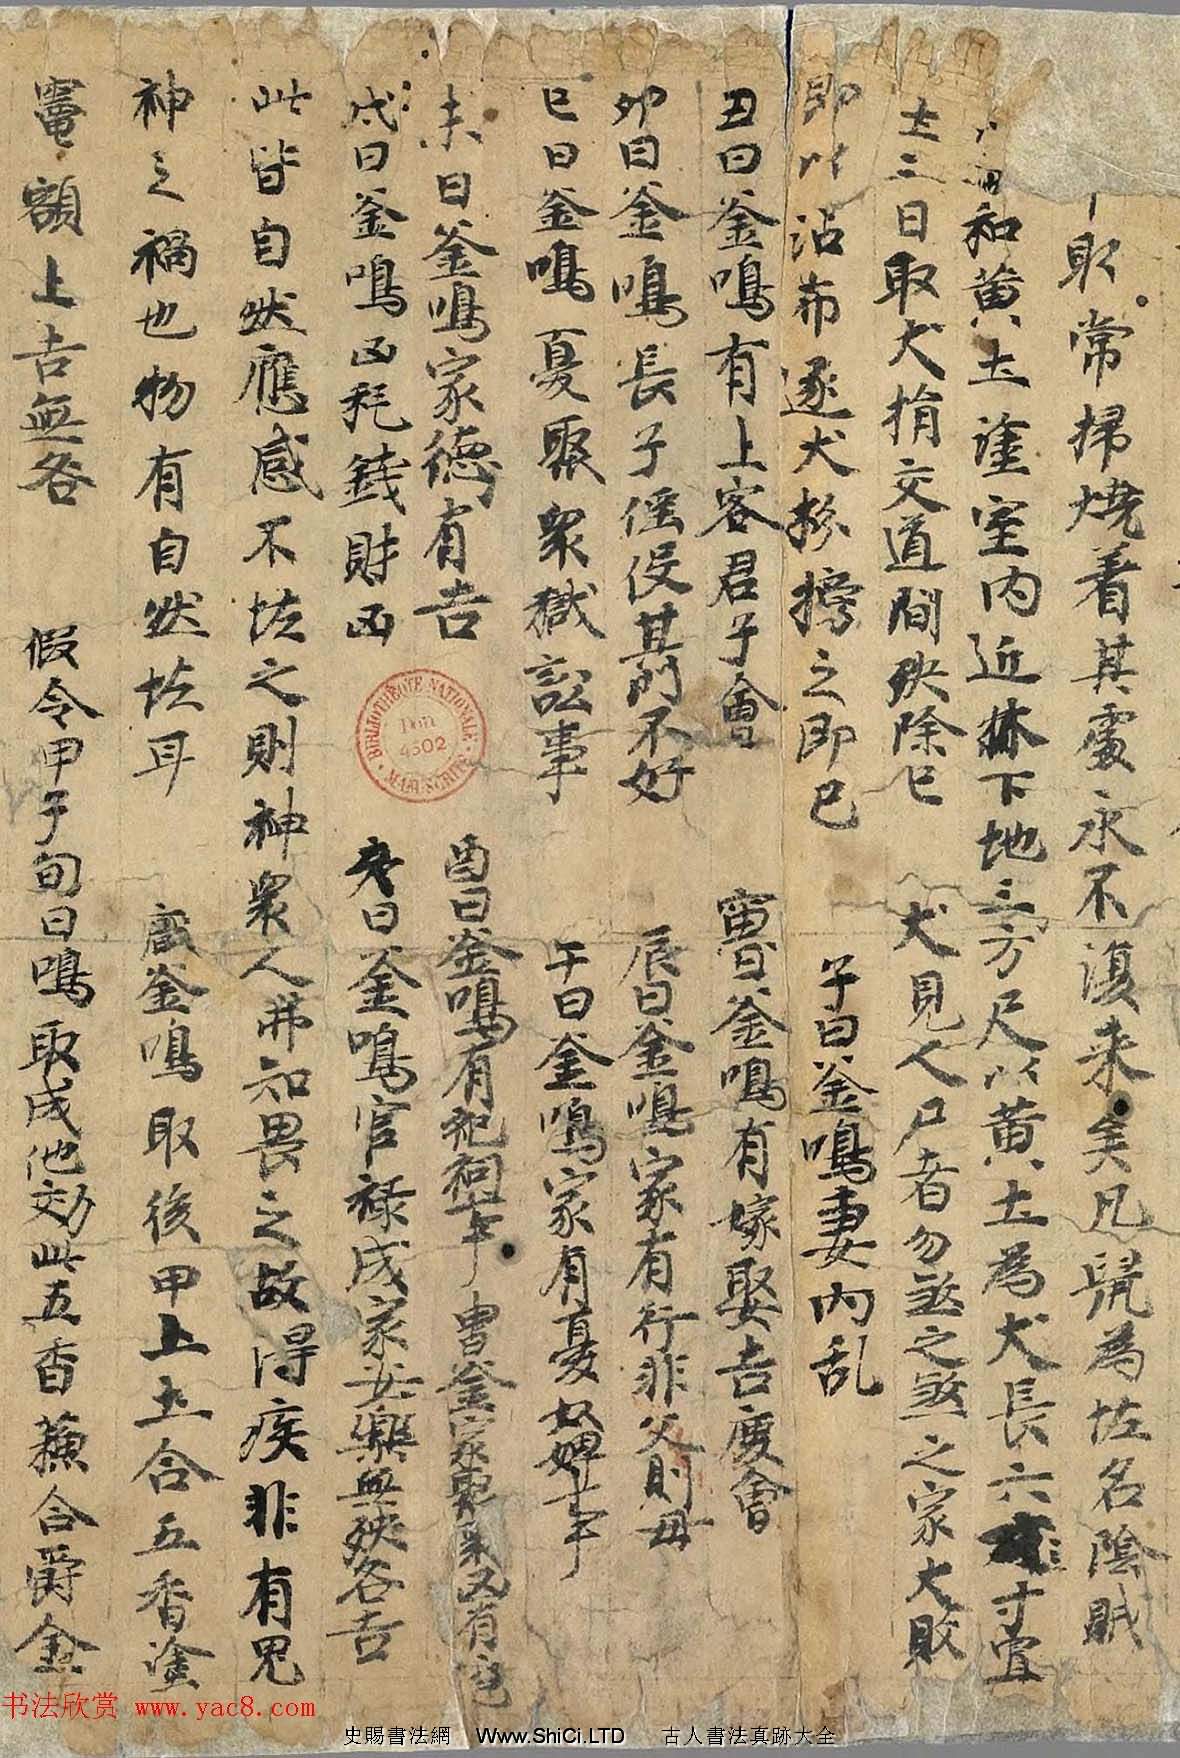 取常掃燒着其處永不復来矣凡髡為怪名陰賊
和黄土塗室内近床下地三方尺以黄土為犬長六寸置
土三日取犬捐交道間殃除已 犬見人尸者勿煞之煞之家大敗
即以沾布逐犬 之即已 子日釜鳴妻内乱
丑日釜鳴有上客君子會 寅日釜鳴有嫁娶吉慶會
卯日釜鳴長子徭役其門不好 辰日釜鳴家有行非父則母
巳日釜鳴憂聚衆獄訟事 午日釜鳴家有憂奴婢
未日釜鳴家德有吉 酉日釜鳴有祀祠
戌日釜鳴凶耗錢財凶 亥日釜鳴官禄成家安樂無殃咎吉
此皆自然應感不怪之則神衆人弗知畏之故得疾非有鬼
神之禍也物有自然怪耳 厭釜鳴取後甲上土合五香塗
竈額上吉無咎 假令甲子旬日鳴取戌他効此五香薰合爵金
BIBLIOTHÈQUE NATIONALE
Don
4502
MANUSCRITS
书法欣赏 www.yac8.com
史賜書法網 Www.ShiCi.LTD 古人書法真跡大全